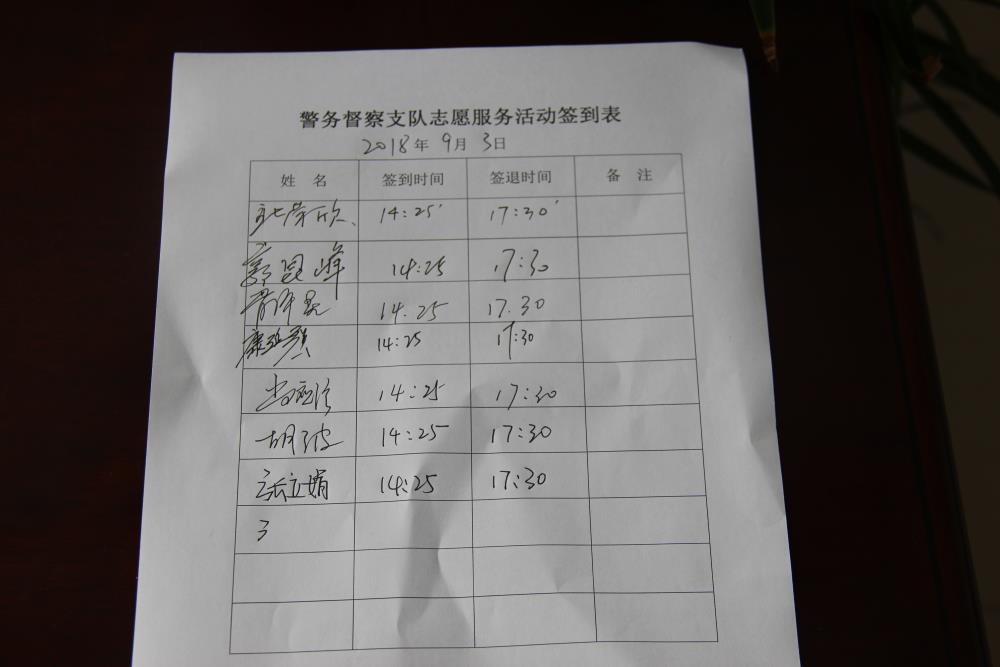 警务督察支队志愿服务活动签到表
2018年9月3日
姓 名 签到时间 签退时间 备 注
荣欣 14:25 17:30
郭昆峰 14:25 17:30
14.25 17.30
康 14:25 17:30
14:25 17:30
胡波 14:25 17:30
张立娟 14:25 17:30